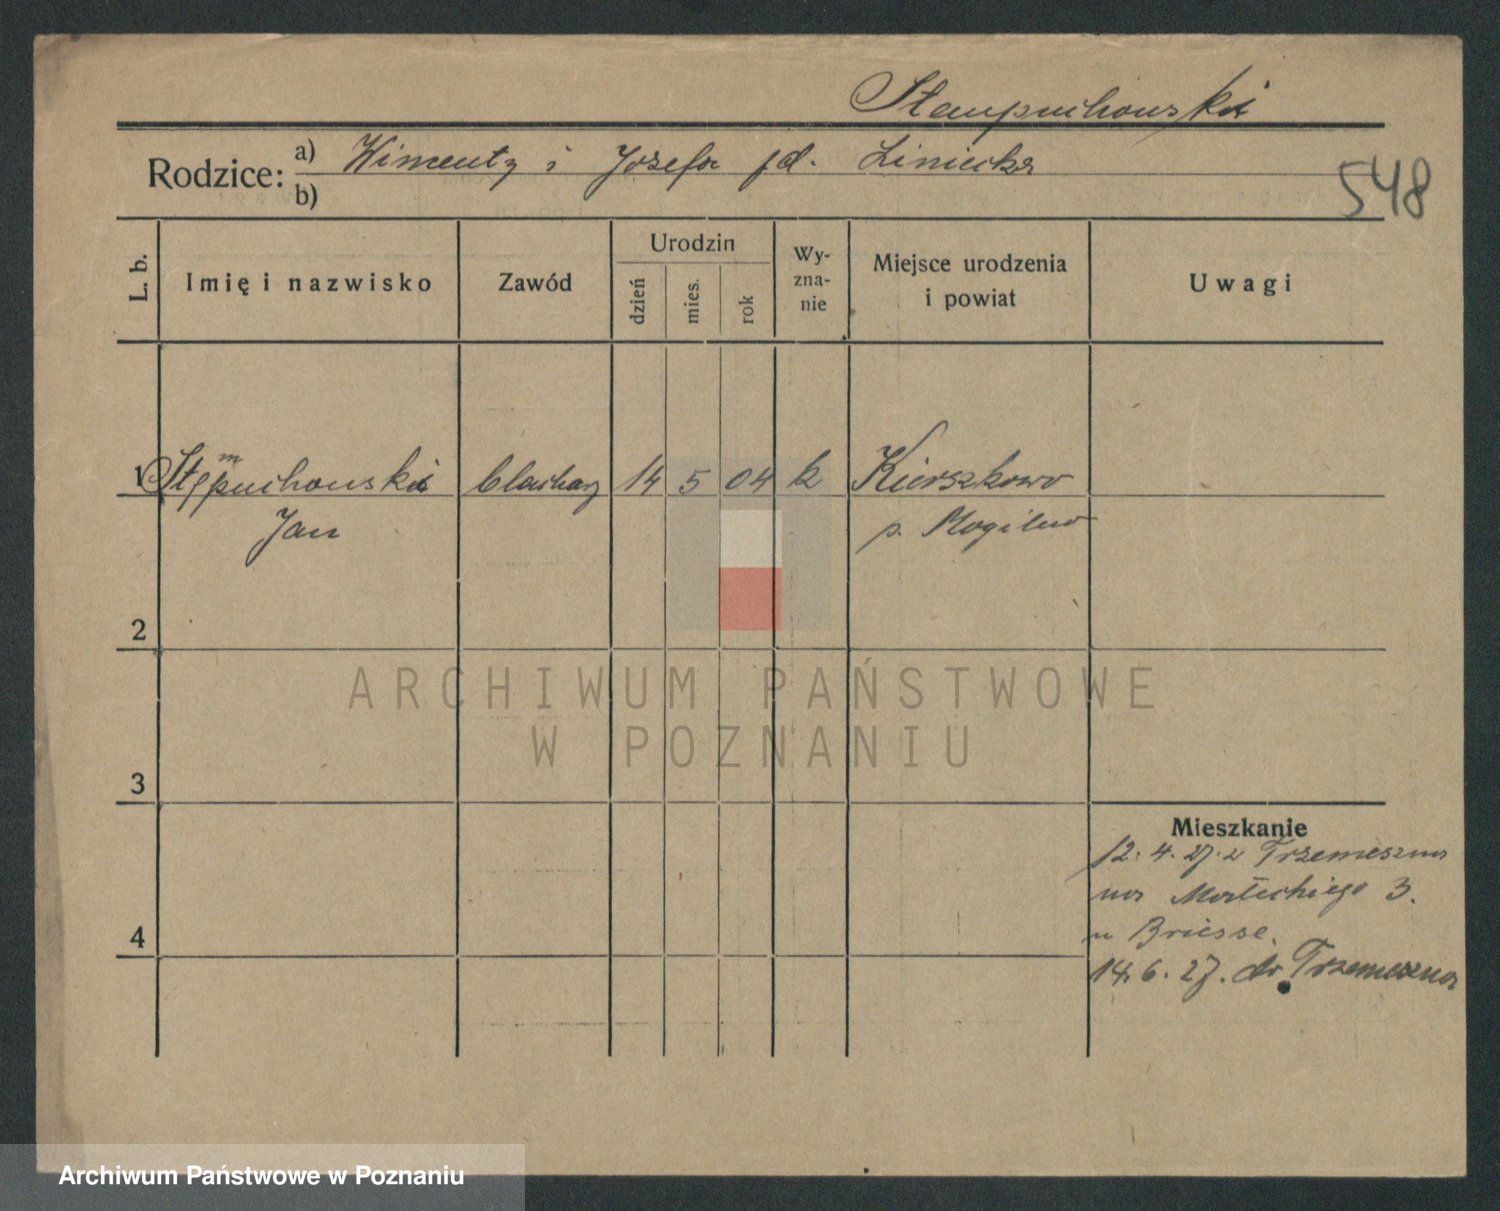 Stempuchowski
Rodzice: a) Wincenty i Józefa jd. Liniecka
b)
548
L. b.
Imię i nazwisko
Zawód
Urodzin
dzień
mies.
rok
Wy-
zna-
nie
Miejsce urodzenia
i powiat
Uwagi
1 Stępuchowski blacharz 14 5 04 k Kierzkowo
m
Jan p. Mogilno
2
3
4
Mieszkanie
12. 4. 27. z Trzemeszna
na Małeckiego 3.
u Briesse.
14. 6. 27. do Trzemeszna
ARCHIWUM PAŃSTWOWE
W POZNANIU
Archiwum Państwowe w Poznaniu